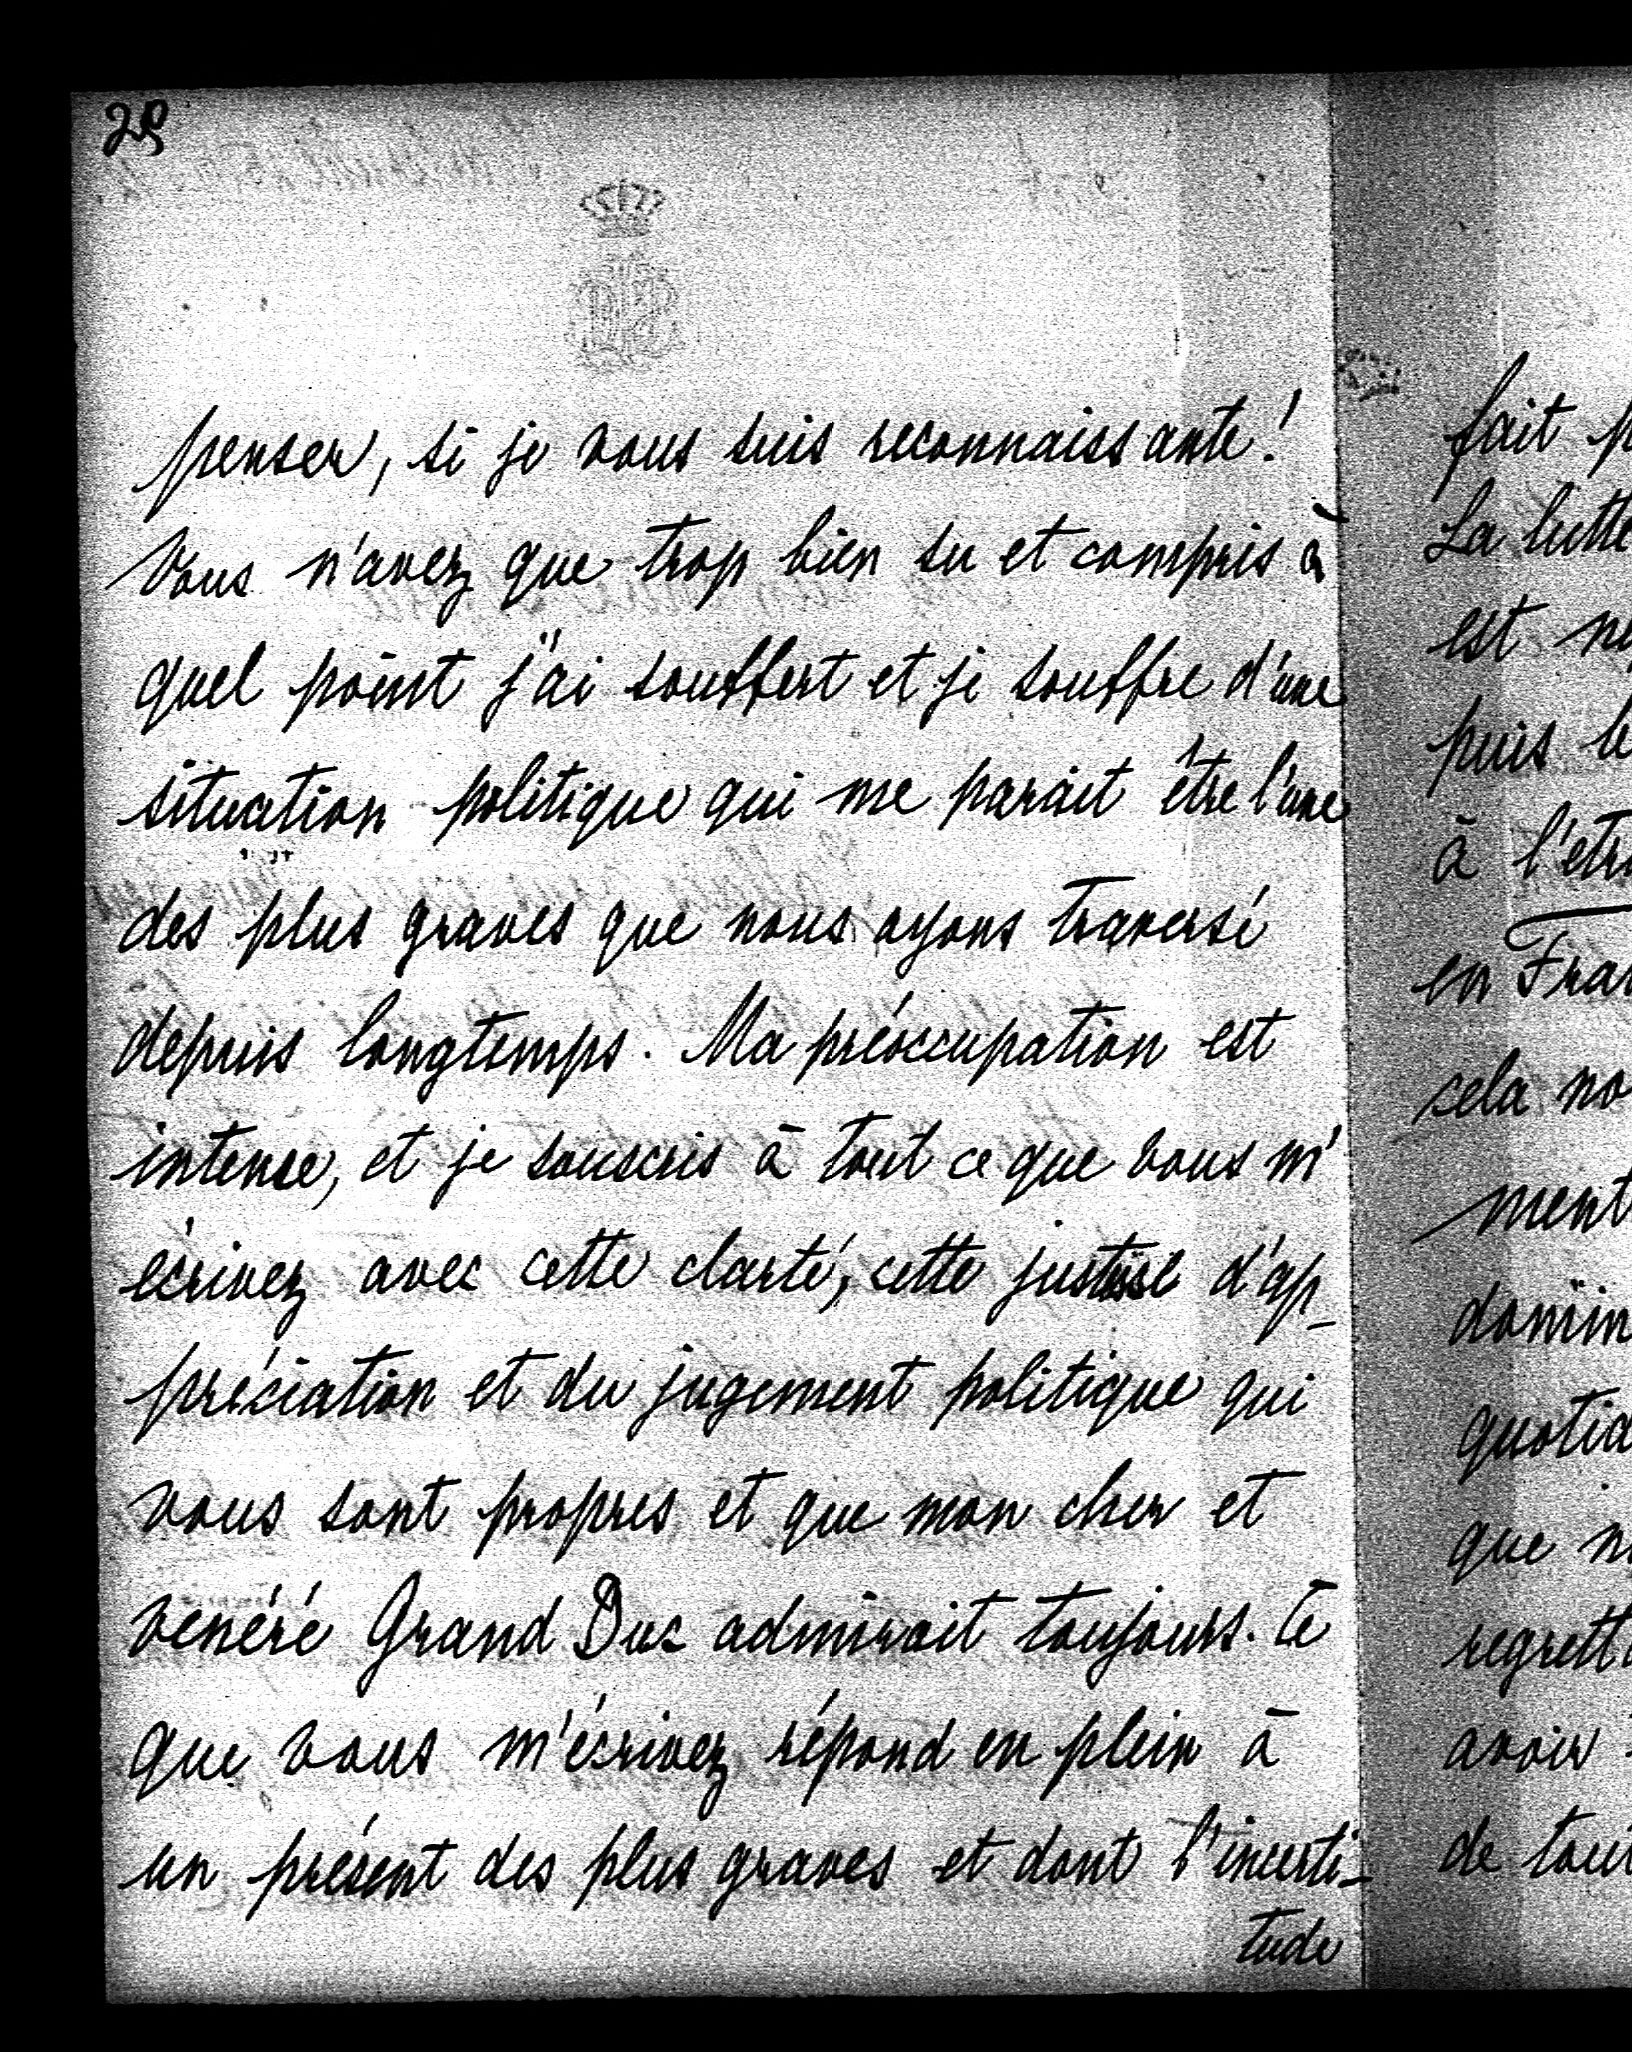 penser, si je vous suis reconnaissante!
Vous n'avez que trop bien su et compris à
quel point j'ai souffert et je souffre d'une
situation politique qui me parait être l'une
des plus graves que nous ayons traversé
depuis longtemps. Ma préoccupation est
intense, et je souscris à tout ce que vous m'
écrivez avec cette clarté, cette justesse d'ap_
préciation et du jugement politique qui
vous sont propres et que mon cher et
vénéré Grand Duc admirait toujours. Ce
que vous m'écrivez répond en plein à
un présent des plus graves et dont l'incerti_
tude
fait p
La lutte
est
puis le
à l'etra
en Fran
cela no
ment
domin
quotid
que
regrett
avoir
de tout